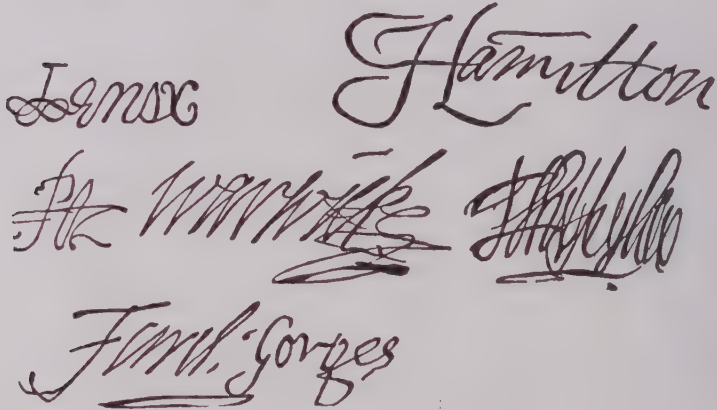 Lenox Hamilton
Warwicke
Ferd: Gorges